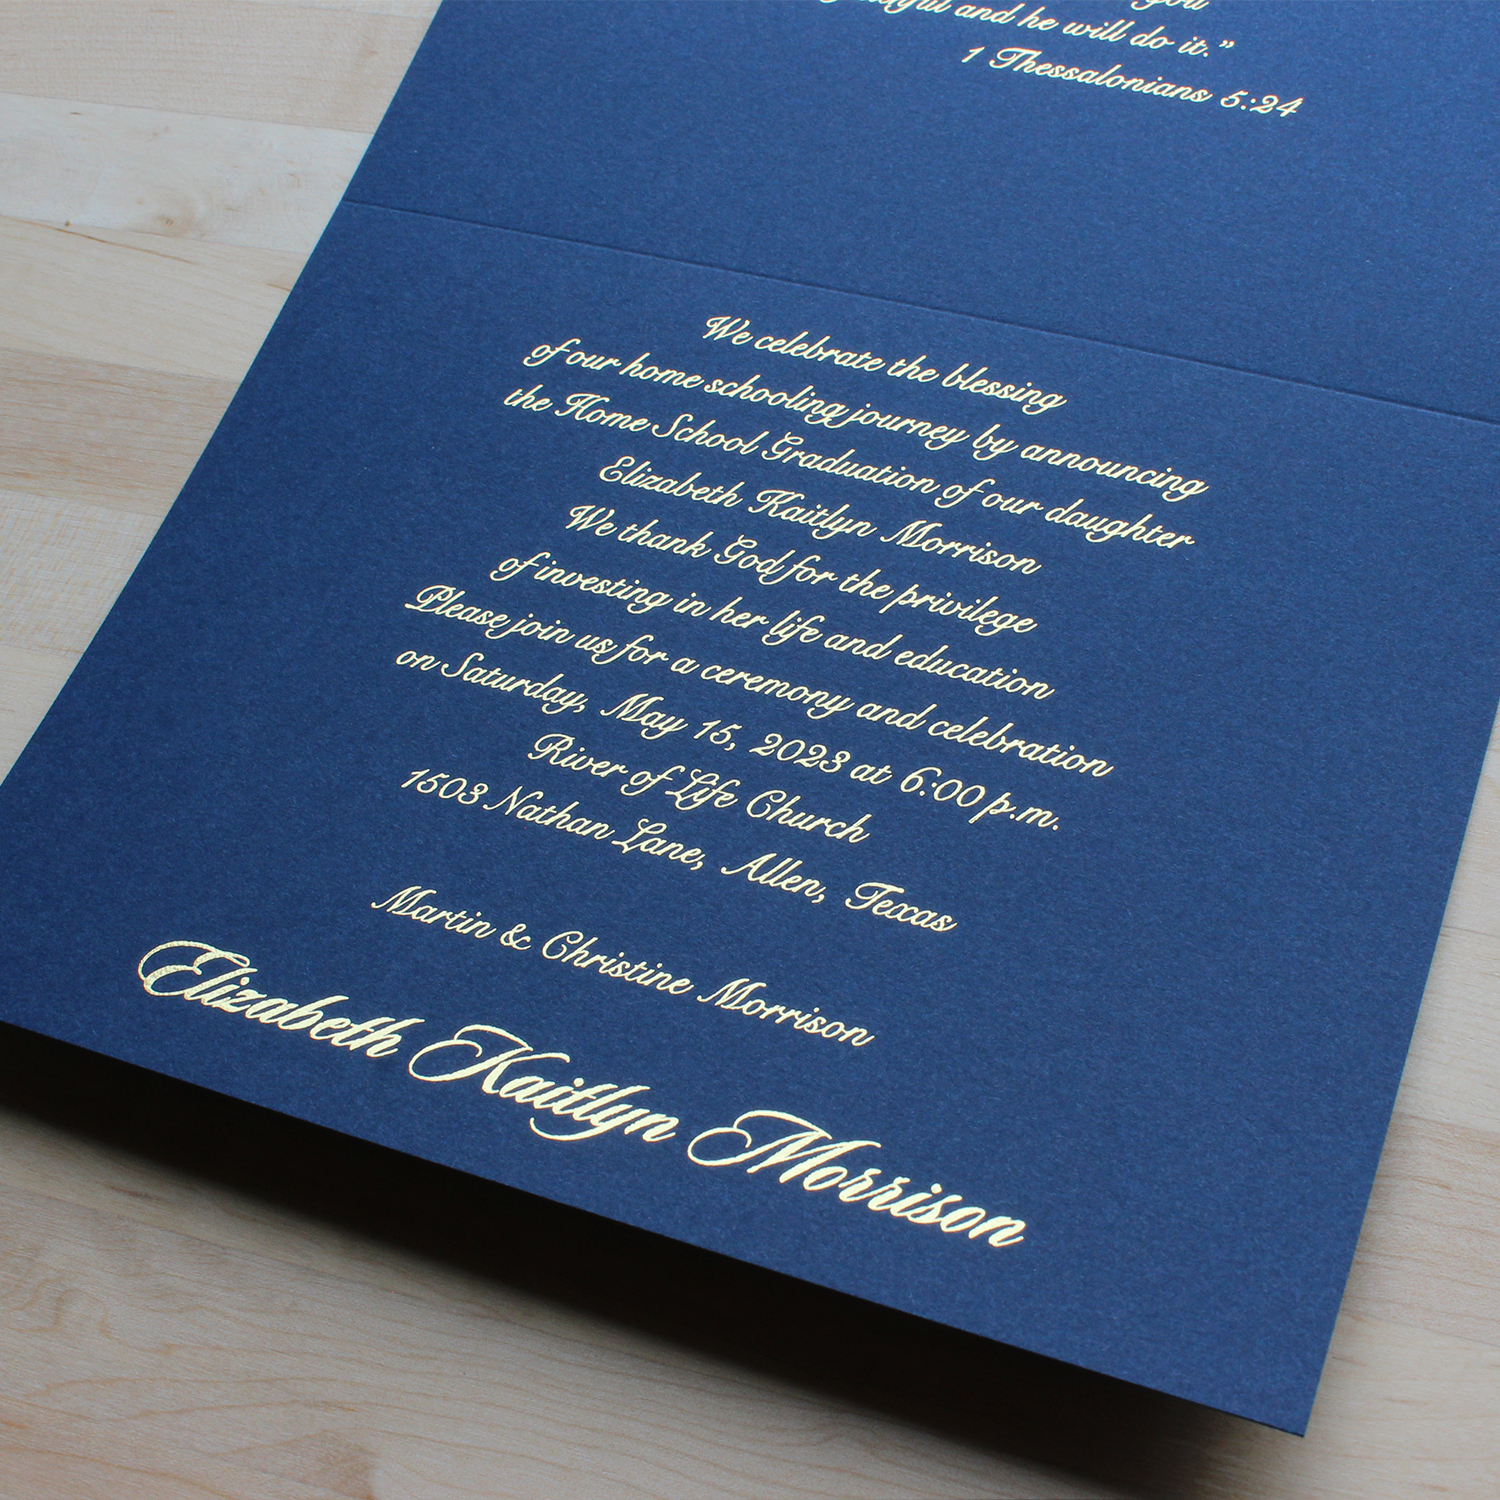 you
and he will do it.”
1 Thessalonians 5:24
We celebrate the blessing
of our home schooling journey by announcing
the Home School Graduation of our daughter
Elizabeth Kaitlyn Morrison
We thank God for the privilege
of investing in her life and education
Please join us for a ceremony and celebration
on Saturday, May 15, 2023 at 6:00 p.m.
River of Life Church
1503 Nathan Lane, Allen, Texas
Martin & Christine Morrison
Elizabeth Kaitlyn Morrison